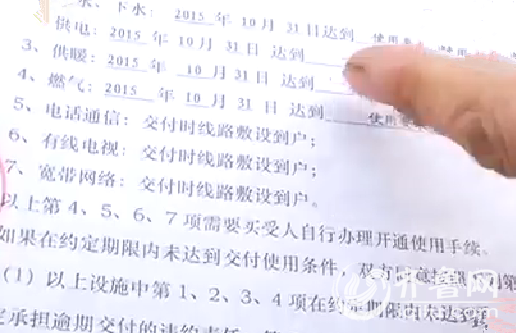 水、下水：2015 年 10 月 31 日达到 使用
供电：2015 年 10 月 31 日 达到
3、供暖：2015 年 10 月 31 日 达到
4、燃气：2015 年 10 月 31 日 达到 使用
5、电话通信：交付时线路敷设到户；
6、有线电视：交付时线路敷设到户；
7、宽带网络：交付时线路敷设到户。
以上第 4、5、6、7 项需要买受人自行办理开通使用手续。
如果在约定期限内未达到交付使用条件，双方同意按照
（1）以上设施中第 1、2、3、4 项在约定期限内未达到
承担逾期交付的违约责任
齐鲁网